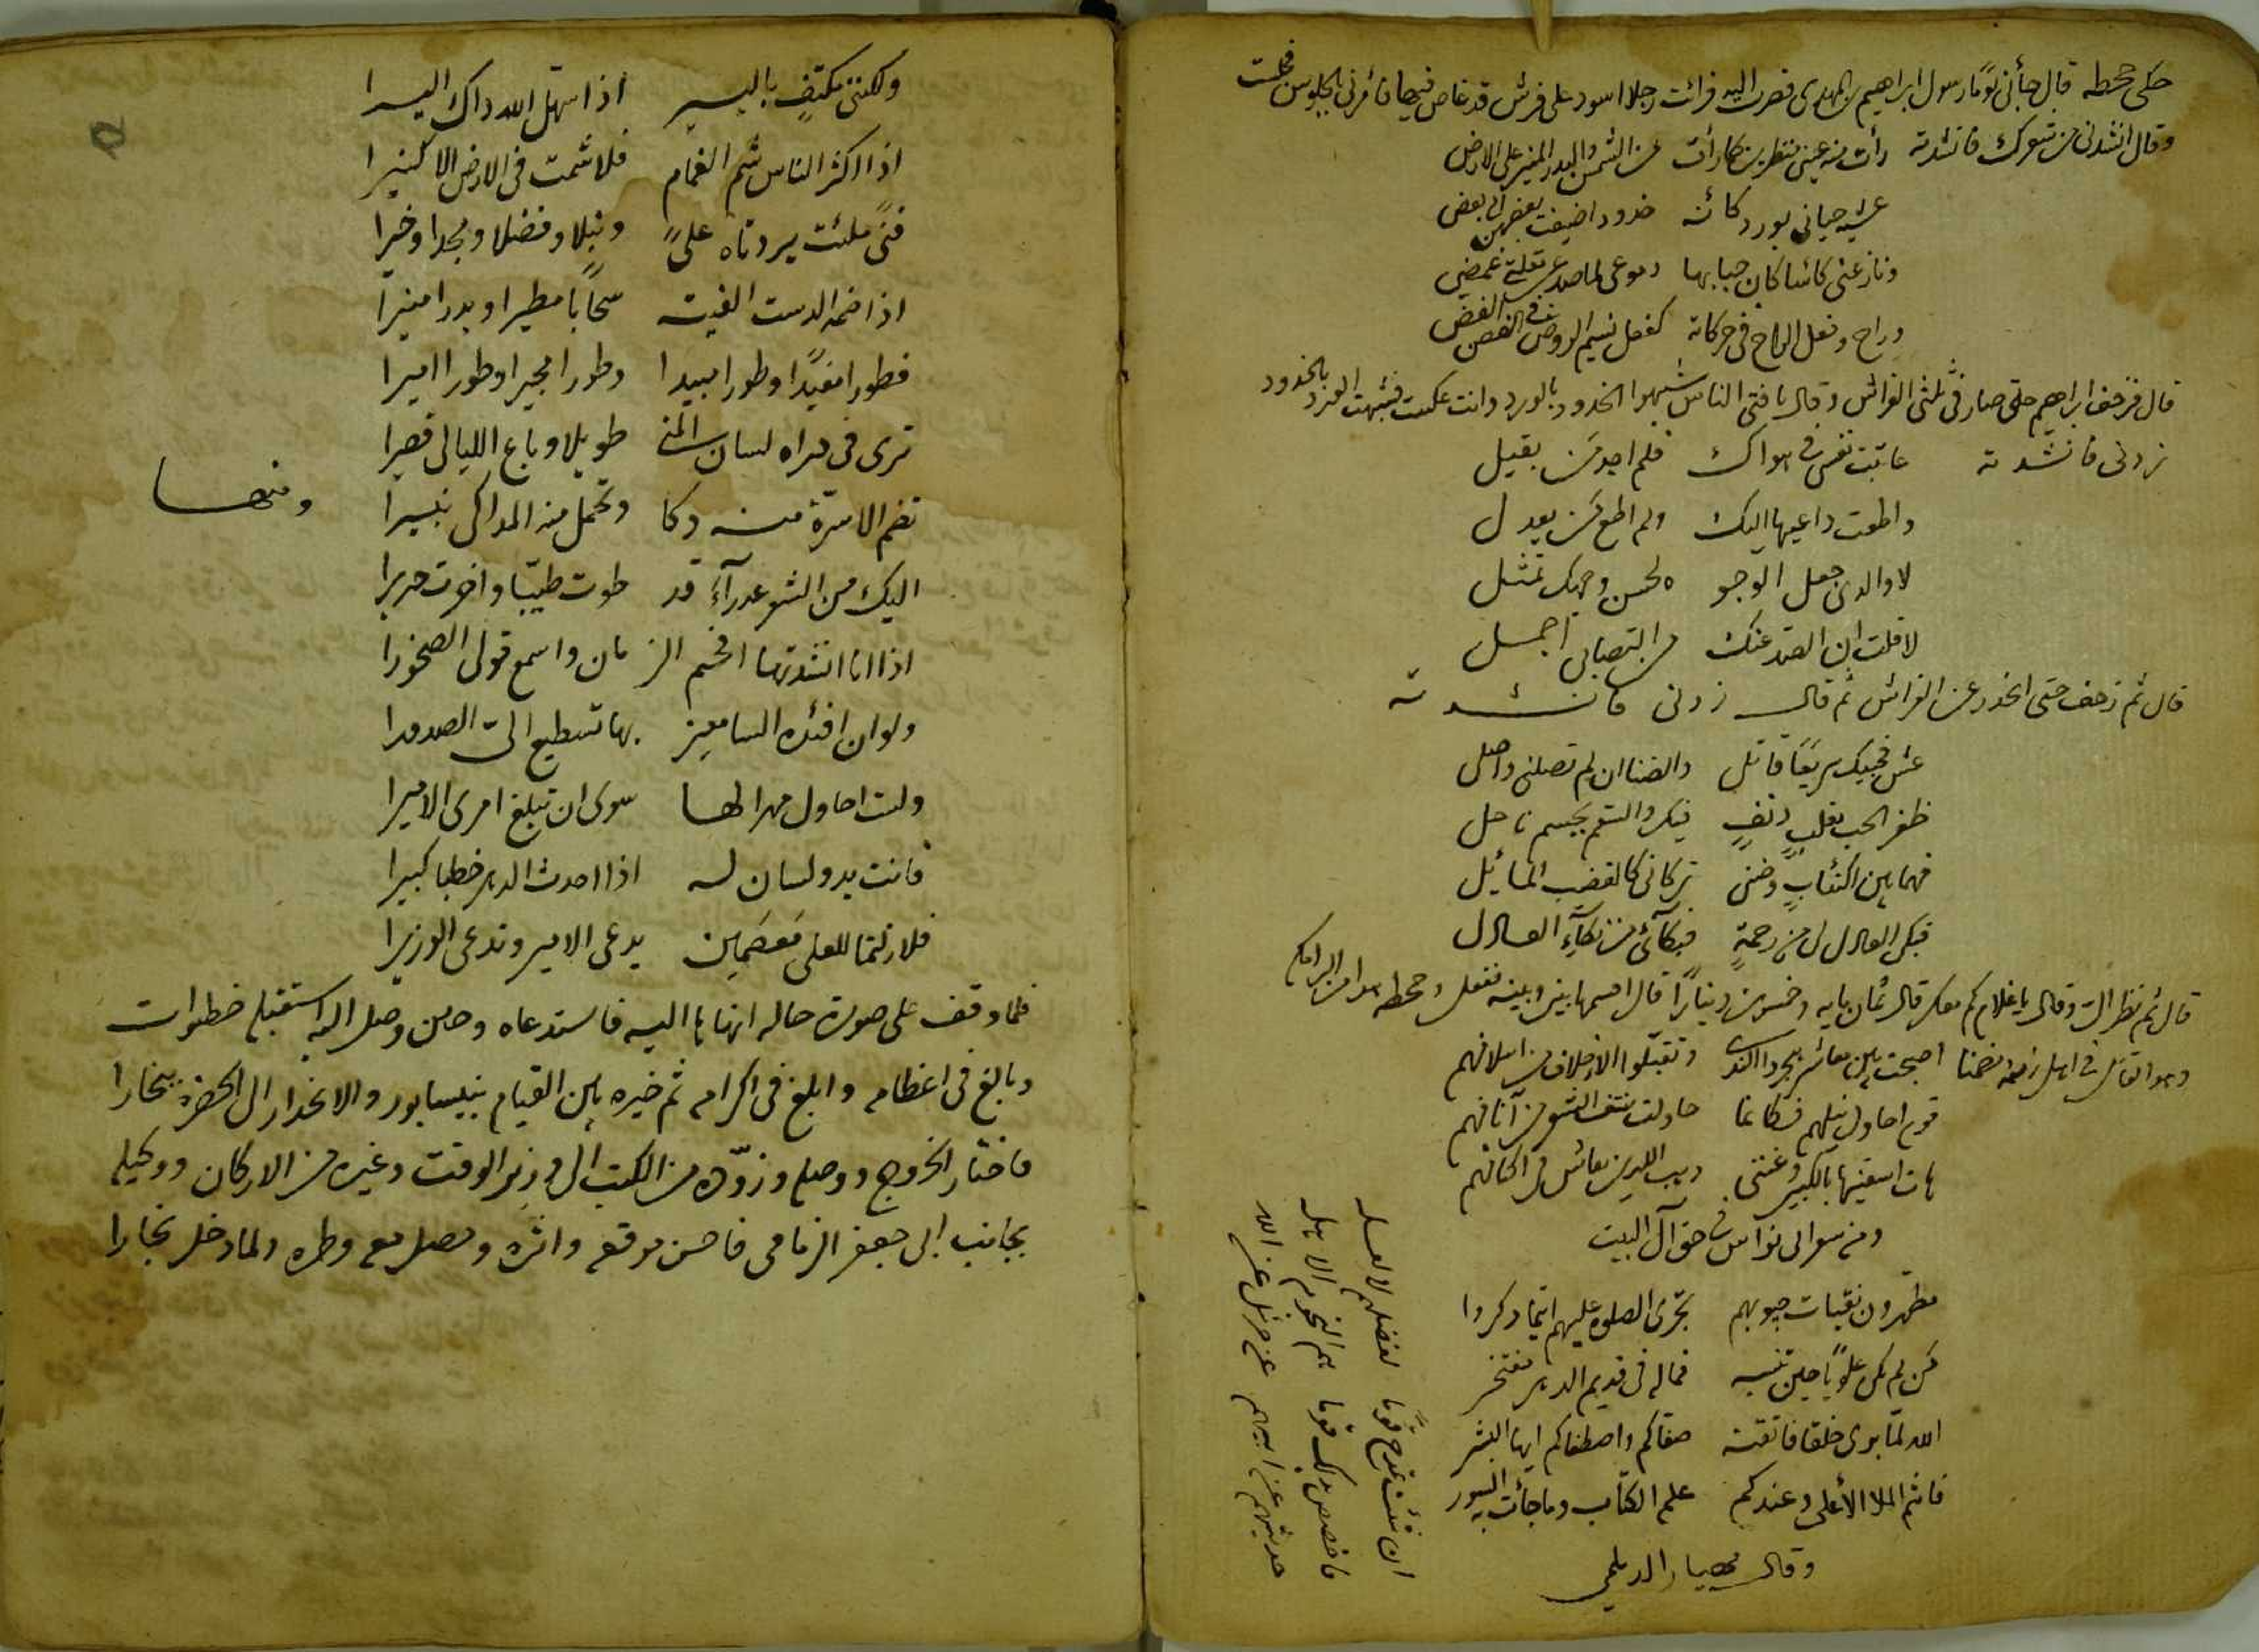 حكى جحطه قال جأنى يومًا رسول ابراهيم بن المهدى فصرت اليه فرائت رجلا اسود على فرش قد غاص فيها فأمرنى بالجلوس فجلست
وقال انشدنى من شعرك فانشدته رأت منه عينى منظرين كما رأت من الشمس والبدر المنير على الارض
عشيه حيانى بورد كائنه خدود اضيفت بعضهن الى بعض
ونازعنى كائسا كان حبابها دموعى لما صد عن مقلتى غمضى
وراح وفعل الراح فى حركاته كفعل نسيم الروض فى الغصن الغض
قال فزحف ابراهيم حتى صار فى ثلثى الفراش وقال يا فتى الناس شبهوا الخدود بالورد وانت عكست فشبهت الورد بالخدود
زدنى فانشدته عاتبت نفسى فى هواك فلم اجد من يقبل
واطعت داعيها اليك ولم اطع من يعدل
لا والدى جعل الوجو ه لحسن وجهك تمثل
لا قلت ان الصد عنك من التصابى اجمل
قال ثم زحف حتى انحدر عن الفراش ثم قال زدنى فانشدته
عش فحبيك سريعًا قاتل والضنا ان لم تصلنى واصل
ظفر الحب بقلبٍ دنفٍ فيك والسقم بجسم ناحل
فهما بين اكتئابٍ وضنى تركانى كالقضيب المائيل
فبكى العادل لى من رحمةٍ فبكائى من بكآءِ العادل
قال ثم نظر الى وقال يا غلام كم معك قال ثمان مايه وخمسون دينارًا قال اقسمها بينى وبينه ففعل وجحطه هوا من البرامكه
وهو القائل فى اهل زمنه اصبحت بين معاشر هجروا الندى وتقبّلوا الاخلاف من اسلافهم
قوم احاول نيلهم فكائما حاولت نتف الشعر من آنافهم
هات اسقنيها بالكبير وغننى ذهب اللدين يعاش فى اكنافهم
ومن شعر ابى نوآس فى حق آل البيت
مطهرون نقيات جيوبهم تجرى الصلوة عليهم اينما دكروا
من لم يكن علويًا حين تنسبه فماله فى قديم الدهر مفتخر
الله لمّا برى خلقا فاتقنه صفاكم واصطفاكم ايها البشر
فانتم الملا الأعلى وعندكم علم الكتاب وما جأت به السور
وقال مهيار الديلمى
ان شئت تمدح قومًا لفضلهم لا لعله
فاخصص بمدحك قوما هم النجوم الاهله
حديثهم عن ابيهم عن جبرئيل عن الله
ولكننى مكتفٍ باليسير اذا سهّل الله داك اليسيرا
اذا اكثر الناس شم الغمام فلا شمت فى الارض الا كثيرا
فتىً ملئت بردتاه علىً ونبلا وفضلا ومجدا وخيرا
اذا ضمه الدست الفيته سحابًا مطيرا وبدرا منيرا
فطورا مفيدًا وطورا مبيدا وطورا مجيرا وطورا اميرا
ترى فى دراه لسان المنى طويلا وباع الليالى قصيرا
تضم الاسرّة منه دكا وتحمل منه المداكى ثبيرا ومنها
اليك من الشعر عدرآءَ قد طوت طيّبا واخرت حريرا
اذا انا انشدتها افخم الز مان واسمع قولى الصخورا
ولو ان افئده السامعين بها تسطيع اليّ الصدورا
ولست احاول مهرا لها سوى ان تبلغ امرى الاميرا
فانت يد ولسان له اذا احدث الدهر خطبا كبيرا
فلا زلتما للعلى مَعصَمين يدعى الامير وتدعى الوزيرا
فلما وقف على صورة حاله انهاها اليه فاستدعاه وحين وصل اليه استقبله خطوات
وبالغ فى اعظامه وابلغ فى اكرامه ثم خيره بين القيام بنيسابور والانحدار الى الحضرة ببخارا
فاختار الخروج ووصله وزوّده من الكتب الى وزير الوقت وغيره من الاركان ووكيله
بجانب ابى جعفر الزمامى فاحسن موقعه واثره وحصل معه وطره ولما دخل بخارا